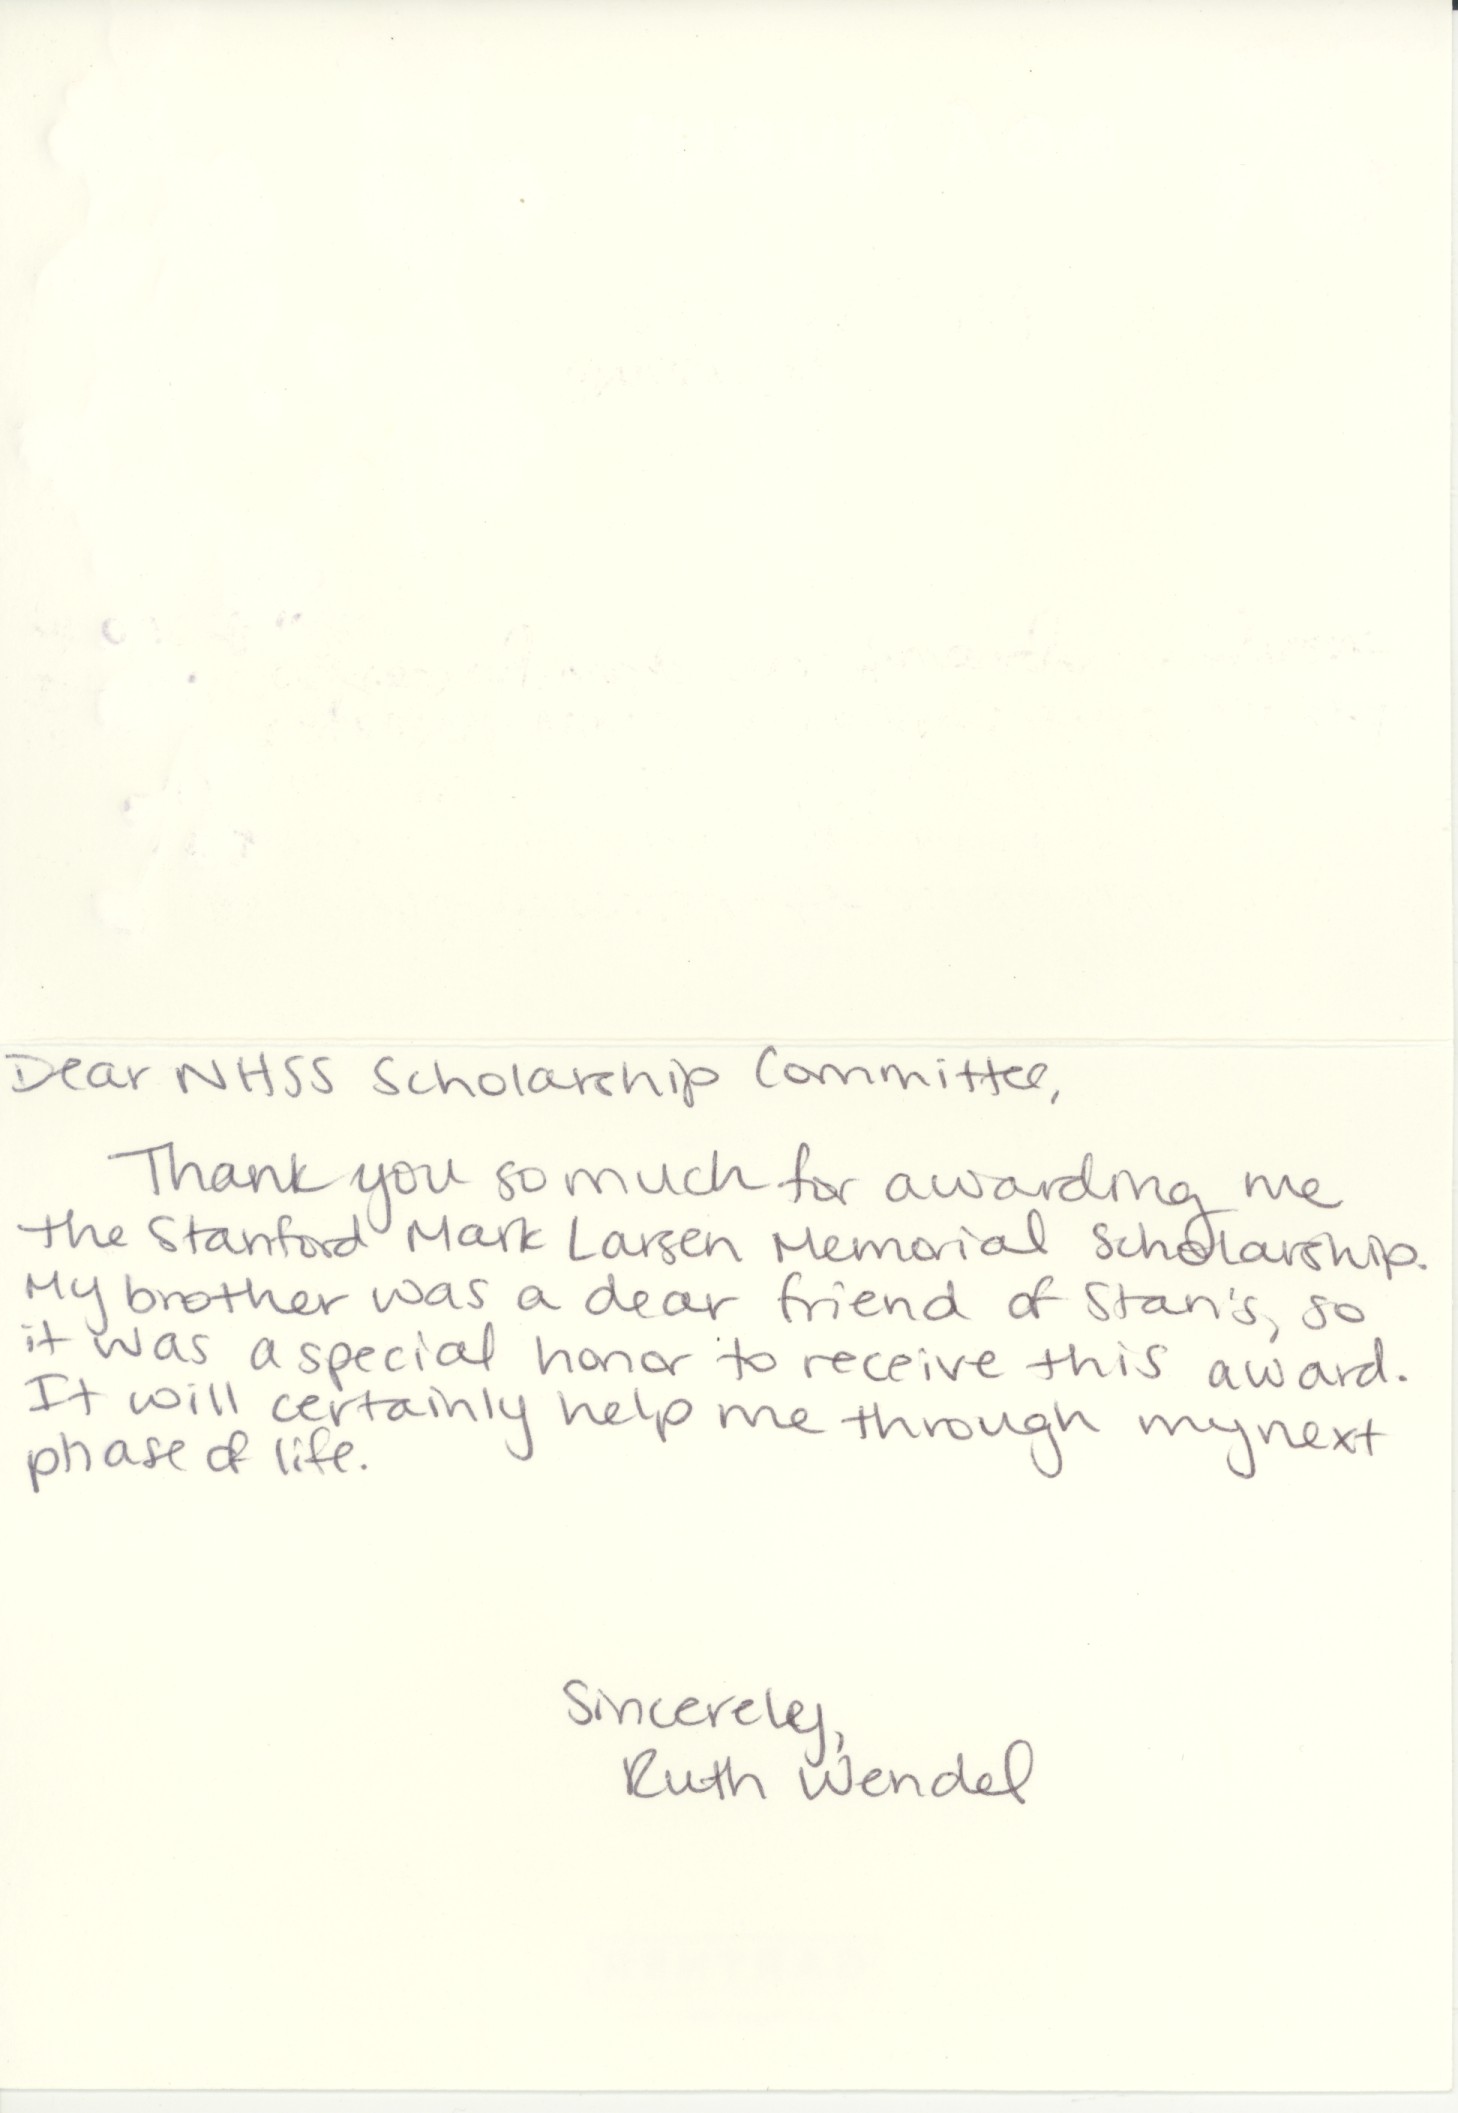 Dear NHSS Scholarship Committee,
Thank you so much for awarding me
the Stanford Mark Larsen Memorial Scholarship.
My brother was a dear friend of Stan's, so
it was a special honor to receive this award.
It will certainly help me through my next
phase of life.
Sincerely,
Ruth Wendel